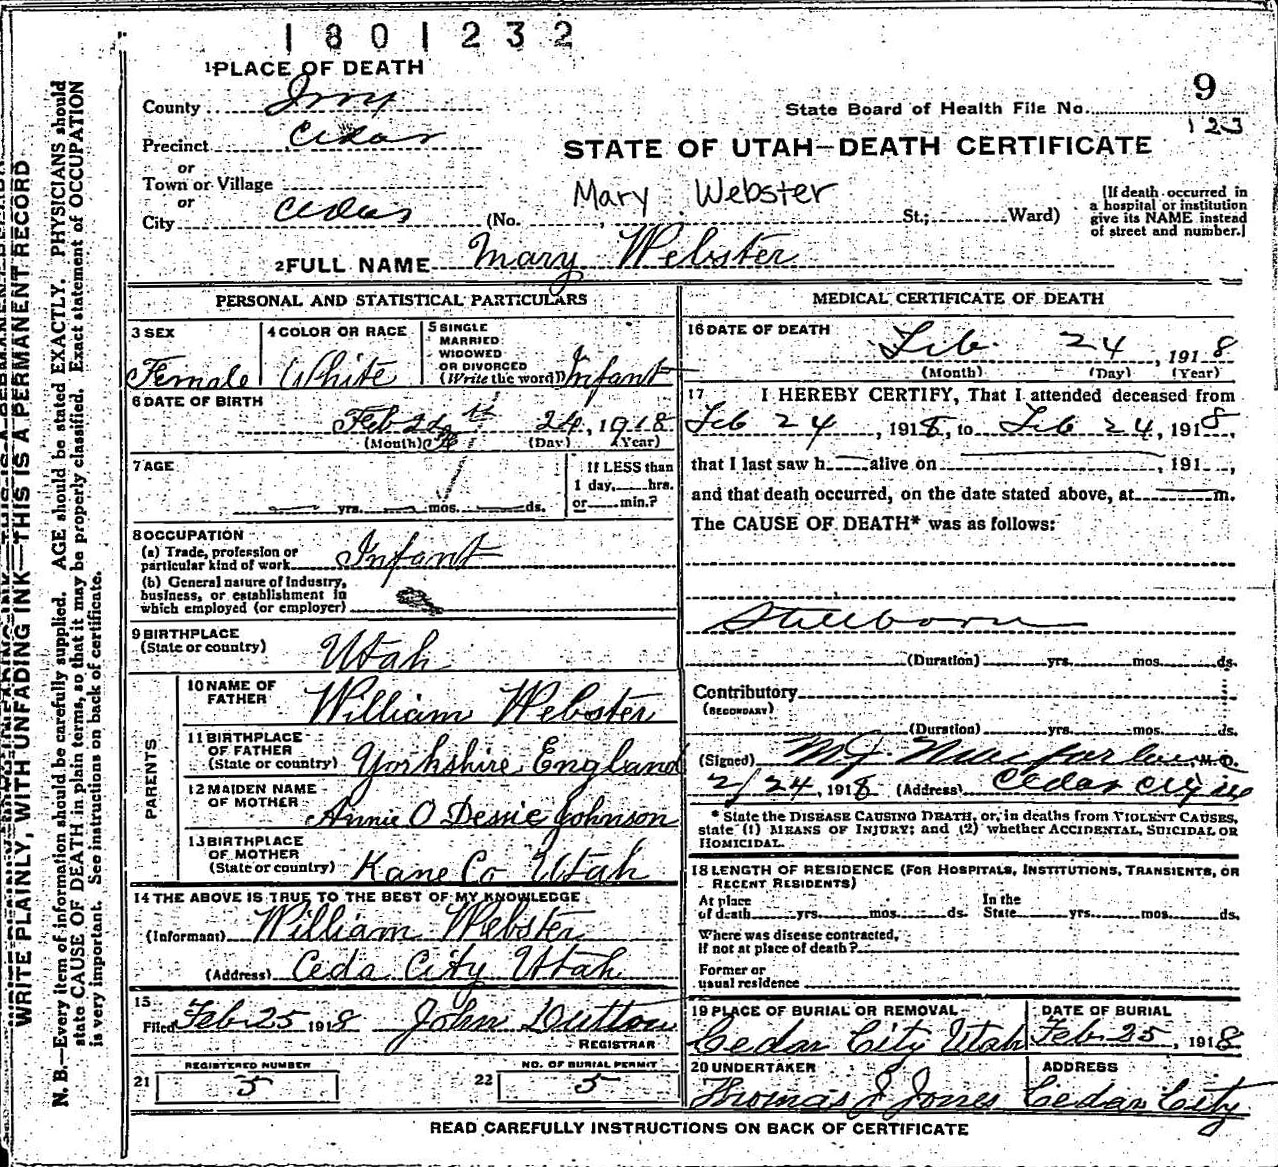 1801232
1 PLACE OF DEATH
County Iron
Precinct Cedar
or
Town or Village
or
City Cedar
State Board of Health File No. 9
123
STATE OF UTAH—DEATH CERTIFICATE
Mary Webster
(No. , St.; Ward)
[If death occurred in
a hospital or institution
give its NAME instead
of street and number.]
2 FULL NAME Mary Webster
PERSONAL AND STATISTICAL PARTICULARS
3 SEX
Female
4 COLOR OR RACE
White
5 SINGLE
MARRIED
WIDOWED
OR DIVORCED
(Write the word) Infant
6 DATE OF BIRTH
Feb 24th 24, 1918
(Month) (Day) (Year)
7 AGE
yrs. mos. ds.
If LESS than
1 day, hrs.
or min.?
8 OCCUPATION
(a) Trade, profession or
particular kind of work Infant
(b) General nature of industry,
business, or establishment in
which employed (or employer)
9 BIRTHPLACE
(State or country) Utah
PARENTS
10 NAME OF
FATHER William Webster
11 BIRTHPLACE
OF FATHER
(State or country) Yorkshire England
12 MAIDEN NAME
OF MOTHER Annie O Dessie Johnson
13 BIRTHPLACE
OF MOTHER
(State or country) Kane Co Utah
14 THE ABOVE IS TRUE TO THE BEST OF MY KNOWLEDGE
(Informant) William Webster
(Address) Ceda City Utah
15
Filed Feb 25 1918 John Dutton
REGISTRAR
REGISTERED NUMBER
21 5
NO. OF BURIAL PERMIT
22 5
MEDICAL CERTIFICATE OF DEATH
16 DATE OF DEATH
Feb. 24, 1918
(Month) (Day) (Year)
17 I HEREBY CERTIFY, That I attended deceased from
Feb 24, 1918, to Feb 24, 1918,
that I last saw h alive on , 191 ,
and that death occurred, on the date stated above, at m.
The CAUSE OF DEATH* was as follows:
Stillborn
(Duration) yrs. mos. ds.
Contributory
(SECONDARY)
(Duration) yrs. mos. ds.
(Signed) M.J. Macfarlane M.D.
2/24, 1918 (Address) Cedar City
* State the DISEASE CAUSING DEATH, or, in deaths from VIOLENT CAUSES,
state (1) MEANS OF INJURY; and (2) whether ACCIDENTAL, SUICIDAL OR
HOMICIDAL.
18 LENGTH OF RESIDENCE (FOR HOSPITALS, INSTITUTIONS, TRANSIENTS, OR
RECENT RESIDENTS)
At place
of death yrs. mos. ds.
In the
State yrs. mos. ds.
Where was disease contracted,
if not at place of death?
Former or
usual residence
19 PLACE OF BURIAL OR REMOVAL
Cedar City Utah
DATE OF BURIAL
Feb. 25, 1918
20 UNDERTAKER
Thomas J Jones
ADDRESS
Cedar City
READ CAREFULLY INSTRUCTIONS ON BACK OF CERTIFICATE
WRITE PLAINLY, WITH UNFADING INK—THIS IS A PERMANENT RECORD
N. B.—Every item of information should be carefully supplied. AGE should be stated EXACTLY. PHYSICIANS should
state CAUSE OF DEATH in plain terms, so that it may be properly classified. Exact statement of OCCUPATION
is very important. See instructions on back of certificate.